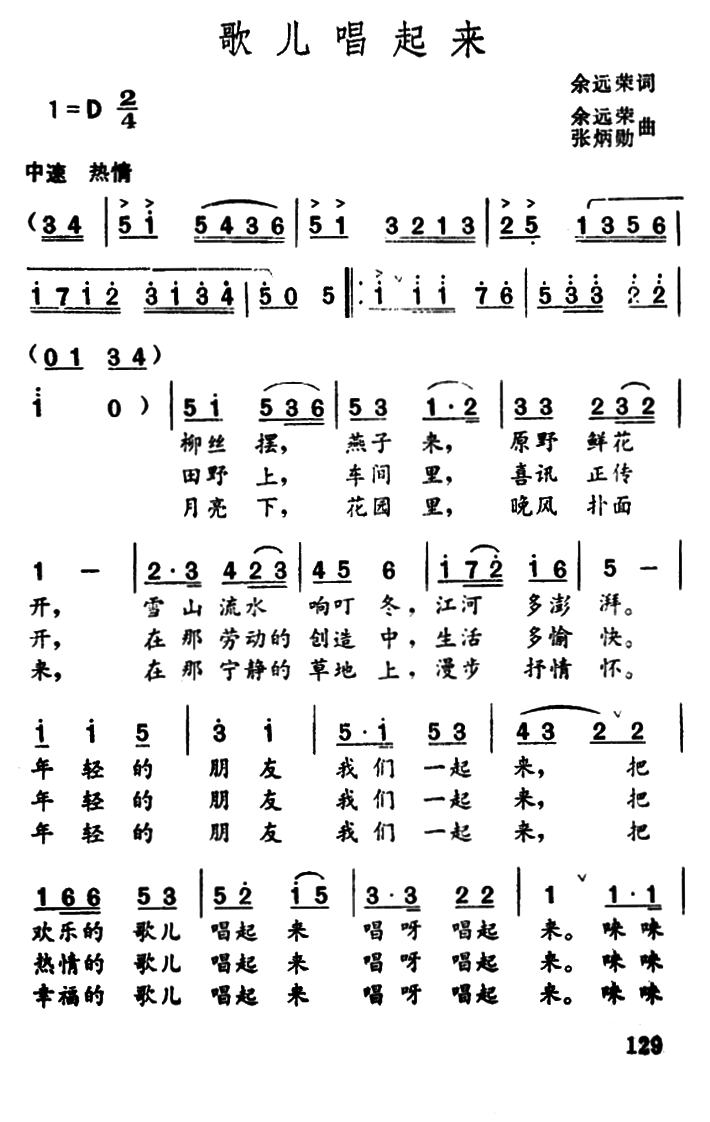 歌儿唱起来
余远荣词
1=D 2/4
余远荣
张炳勋曲
中速 热情
(3 4 | 5 i 5 4 3 6 | 5 1 3 2 1 3 | 2 5 1 3 5 6 |
i 7 i 2 3 i 3 4 | 5 0 5 ‖: i i i 7 6 | 5 3 3 2 2 |
(0 1 3 4)
i 0) | 5 i 5 3 6 | 5 3 1·2 | 3 3 2 3 2 |
柳丝 摆, 燕子 来, 原野 鲜花
田野 上, 车间 里, 喜讯 正传
月亮 下, 花园 里, 晚风 扑面
1 - | 2·3 4 2 3 | 4 5 6 | i 7 2 i 6 | 5 - |
开, 雪山流水 响叮冬, 江河 多澎 湃。
开, 在那劳动的 创造中, 生活 多愉 快。
来, 在那宁静的 草地上, 漫步 抒情 怀。
i i 5 | 3 i | 5·i 5 3 | 4 3 2 2 |
年轻的 朋友 我们一起 来, 把
年轻的 朋友 我们一起 来, 把
年轻的 朋友 我们一起 来, 把
1 6 6 5 3 | 5 2 i 5 | 3·3 2 2 | 1 1·1 |
欢乐的 歌儿 唱起 来 唱呀 唱起 来。 咪咪
热情的 歌儿 唱起 来 唱呀 唱起 来。 咪咪
幸福的 歌儿 唱起 来 唱呀 唱起 来。 咪咪
129